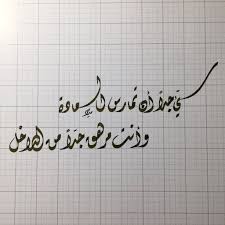 سيء جداً أن تمارس السعادة
وأنت مرهق جداً من الداخل